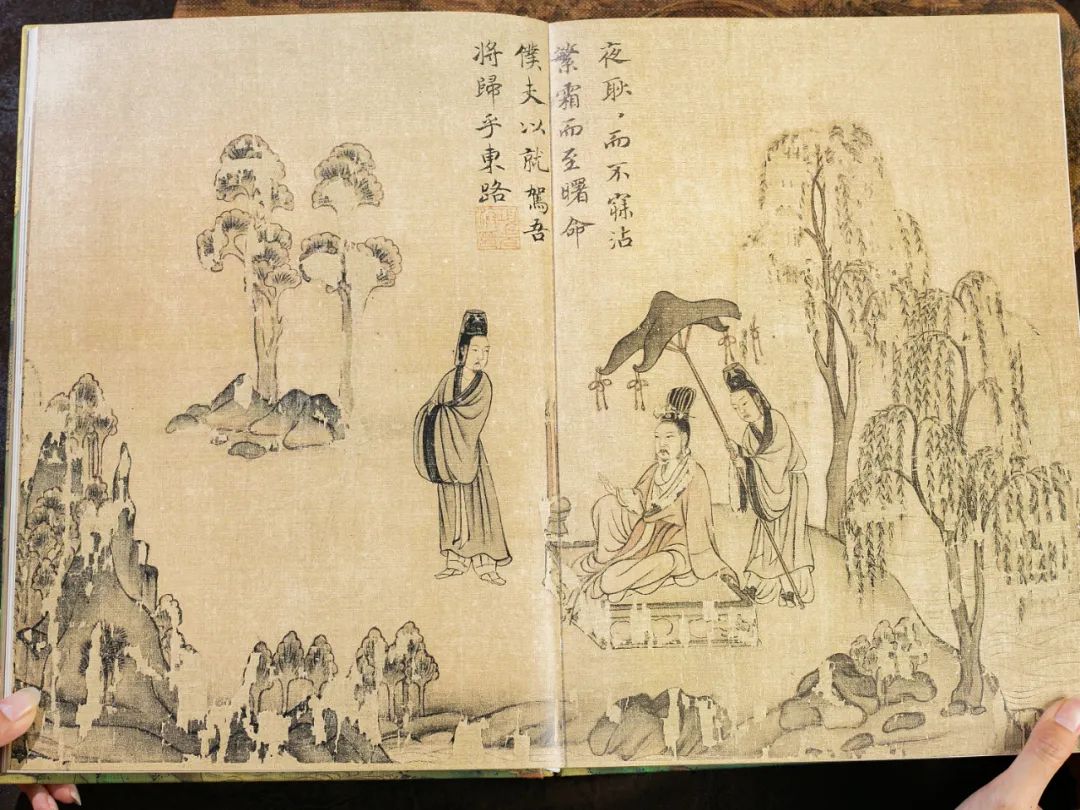 夜耿，而不寐沾
繁霜而至曙命
僕夫以就駕吾
將歸乎東路